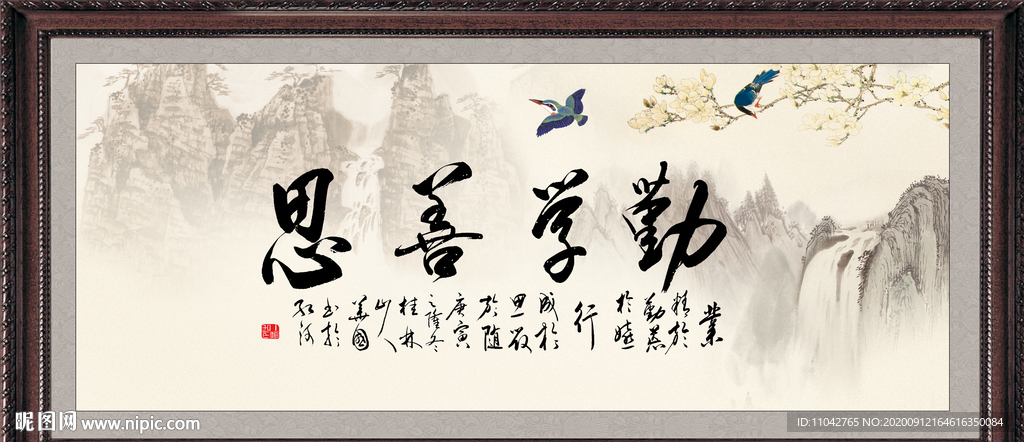 勤学善思
業
精於
勤荒
於嬉
行
成於
思毁
於随
庚寅
之隆冬
桂林
山人
國
书於
昵图网 www.nipic.com
ID:11042765 NO:20200912164616350084